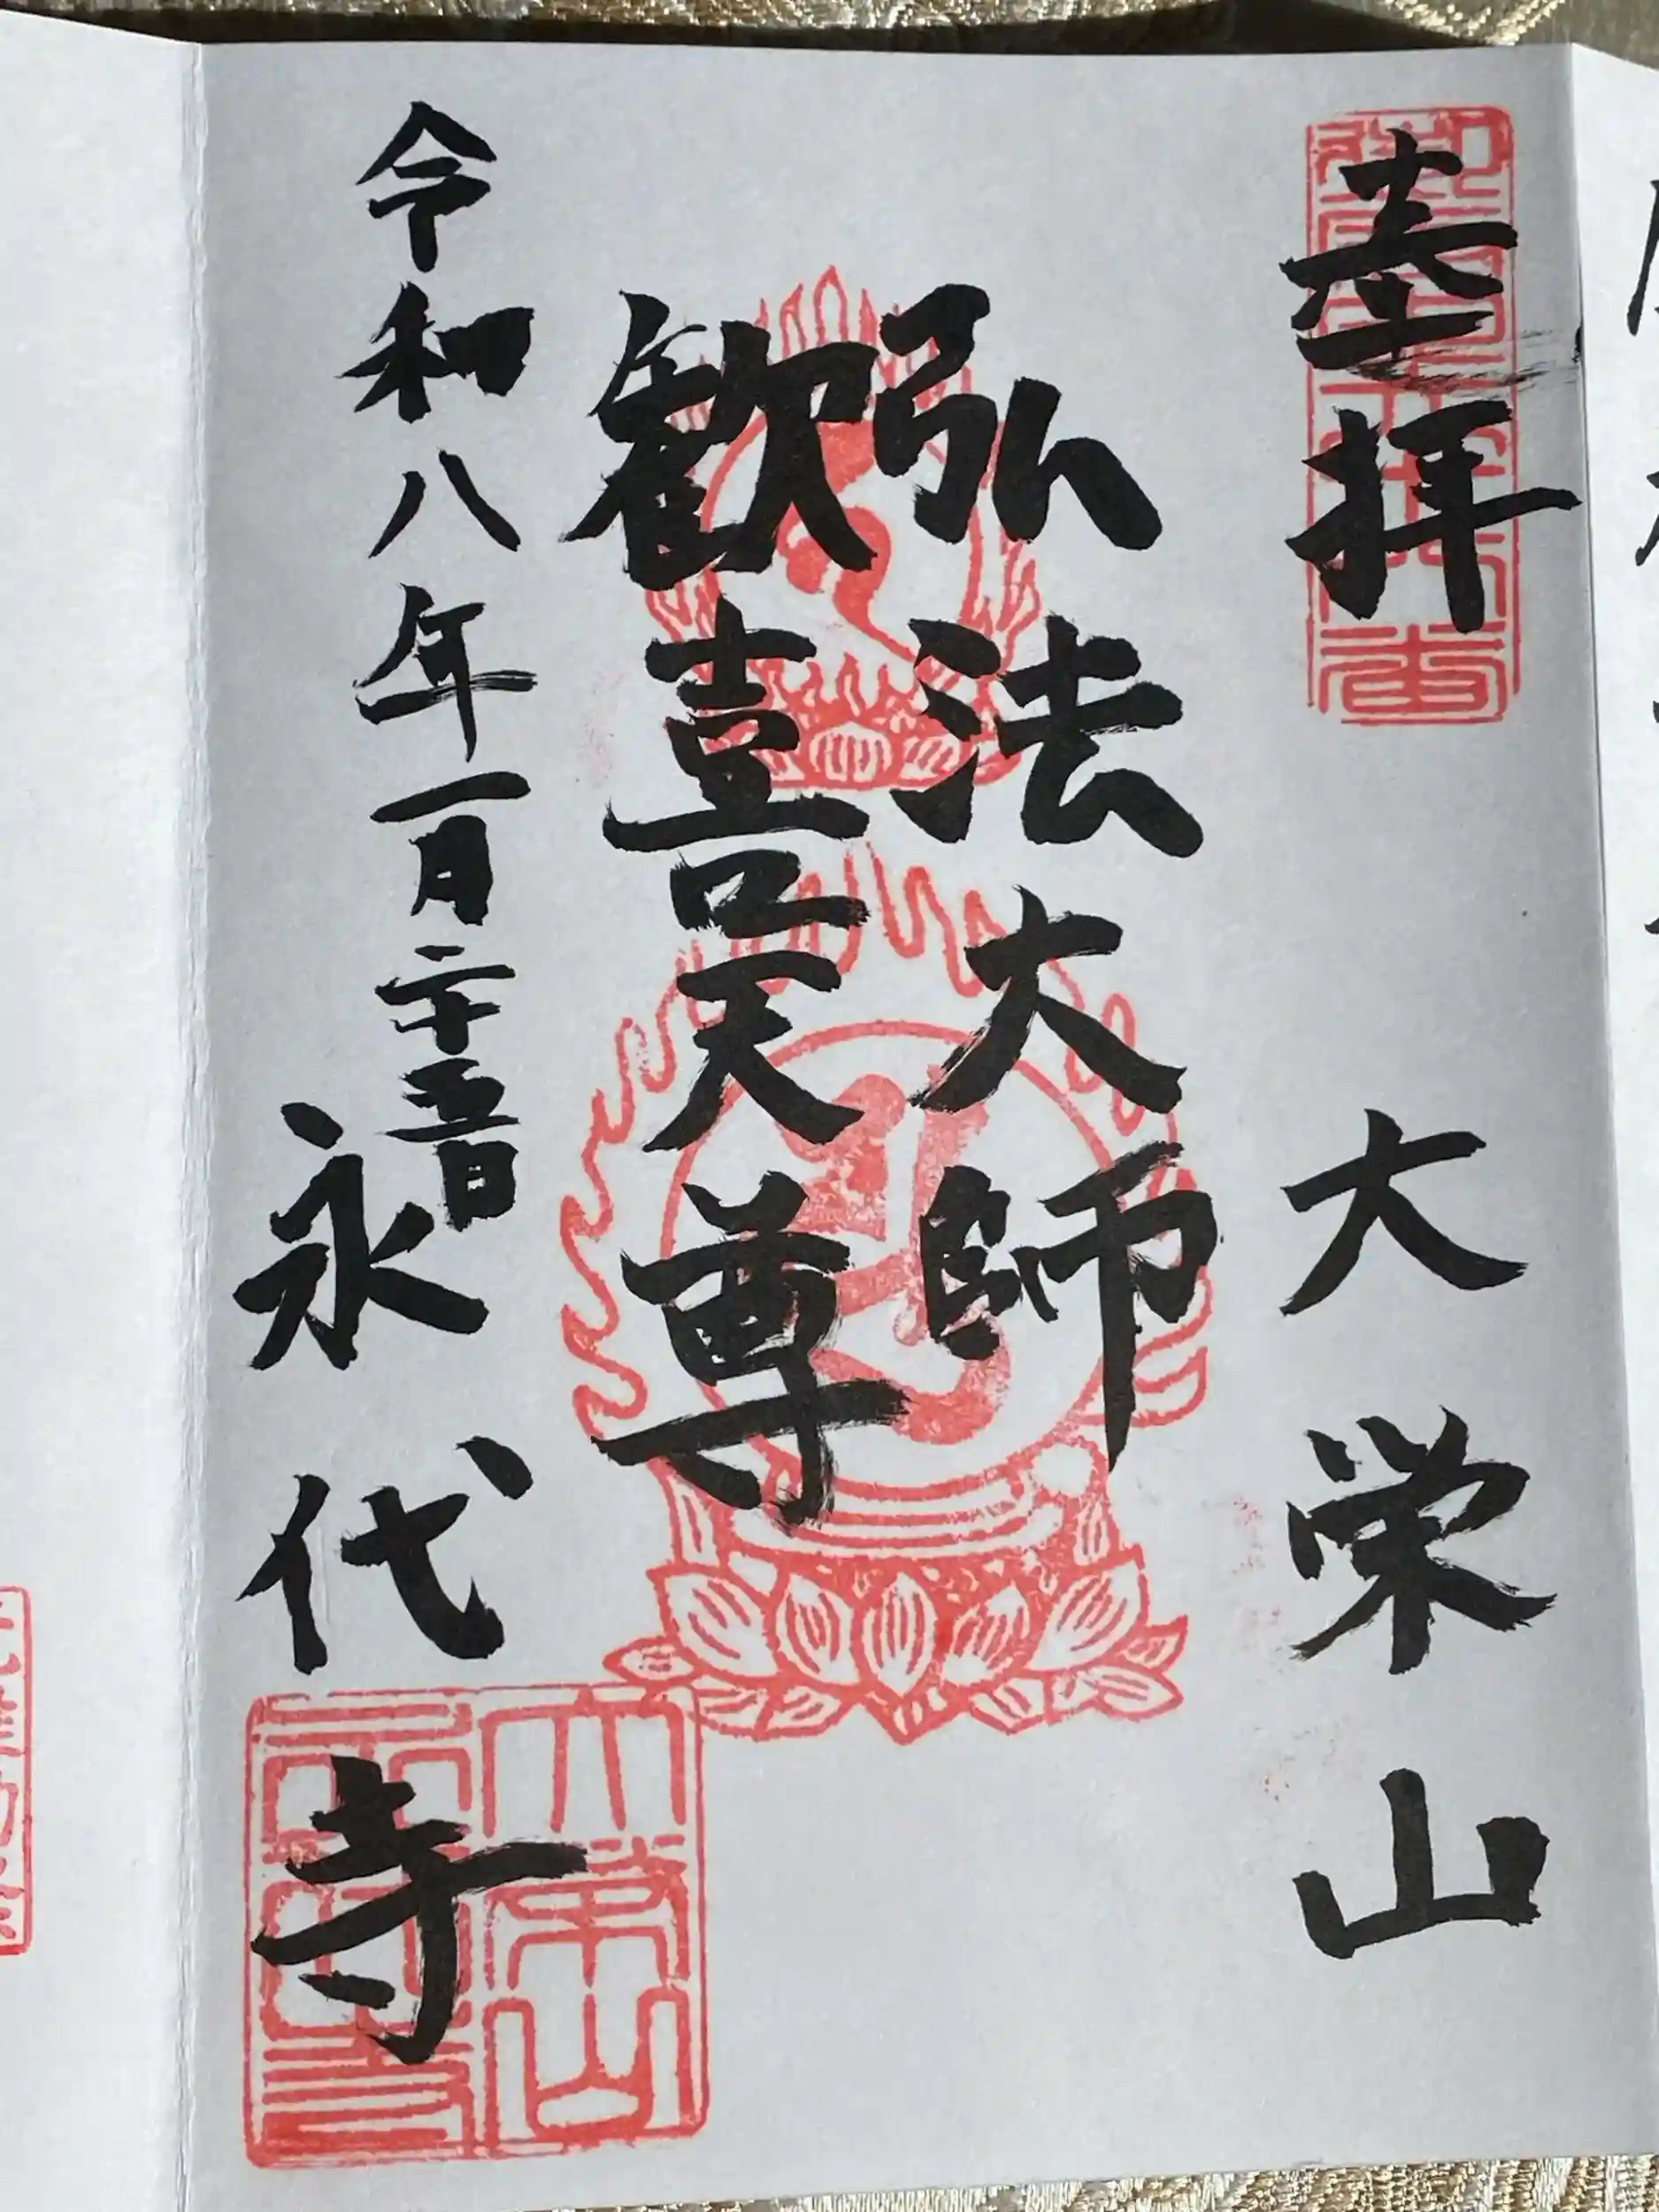 奉拝 大栄山
弘法大師
歓喜天尊
令和八年一月二十五日
永代寺